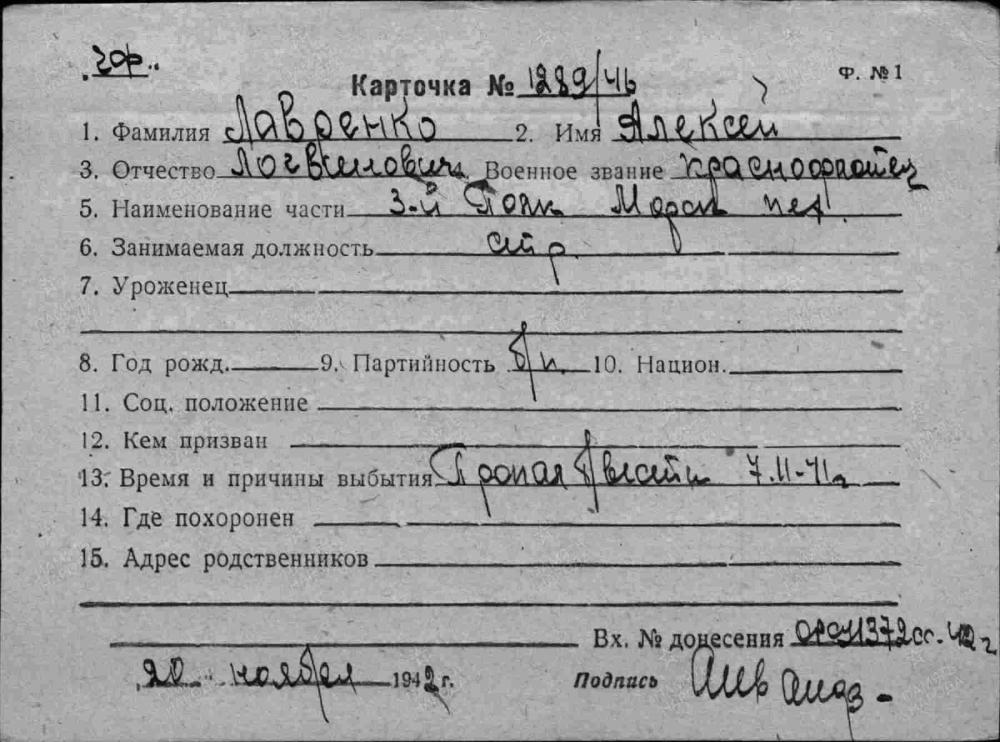 чф.
Ф. №1
Карточка № 1289/46
1. Фамилия Лавренко 2. Имя Алексей
3. Отчество Логвинович. Военное звание краснофлотец
5. Наименование части 3-й Полк Морск пех.
6. Занимаемая должность стр.
7. Уроженец
8. Год рожд. 9. Партийность б/п. 10. Национ.
11. Соц. положение
12. Кем призван
13. Время и причины выбытия Пропал б/вести 7.11-41г
14. Где похоронен
15. Адрес родственников
Вх. № донесения 1372сс-42г
20 ноября 1942г. Подпись